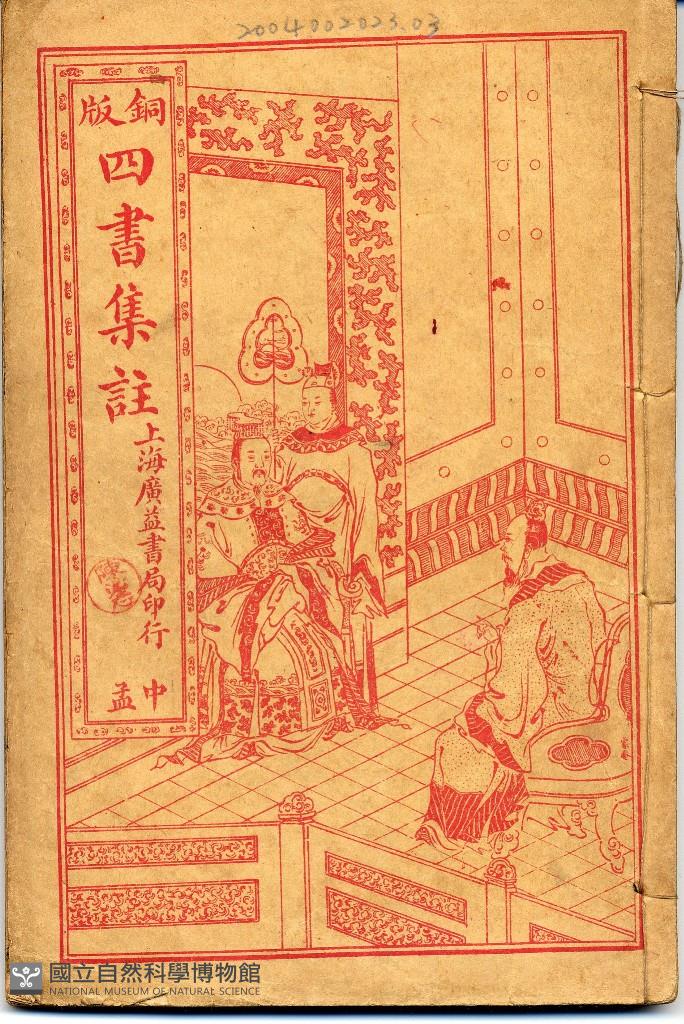 2004002023.03
銅版
四書集註
上海廣益書局印行
中孟
國立自然科學博物館
NATIONAL MUSEUM OF NATURAL SCIENCE